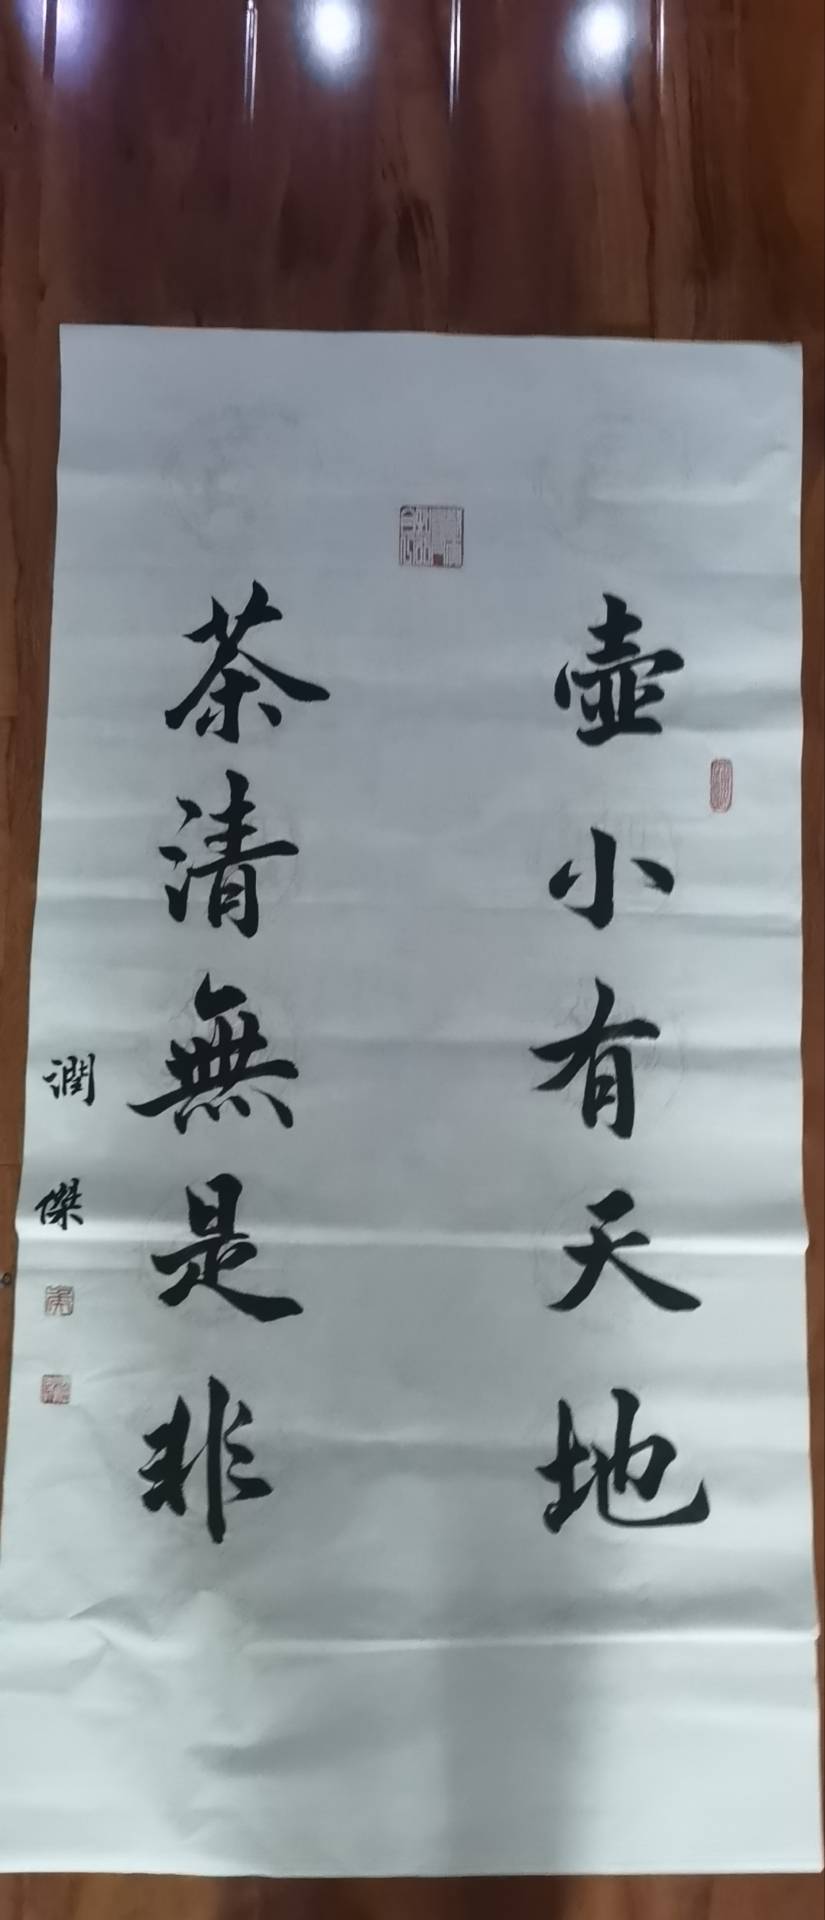 壺小有天地
茶清無是非
潤傑